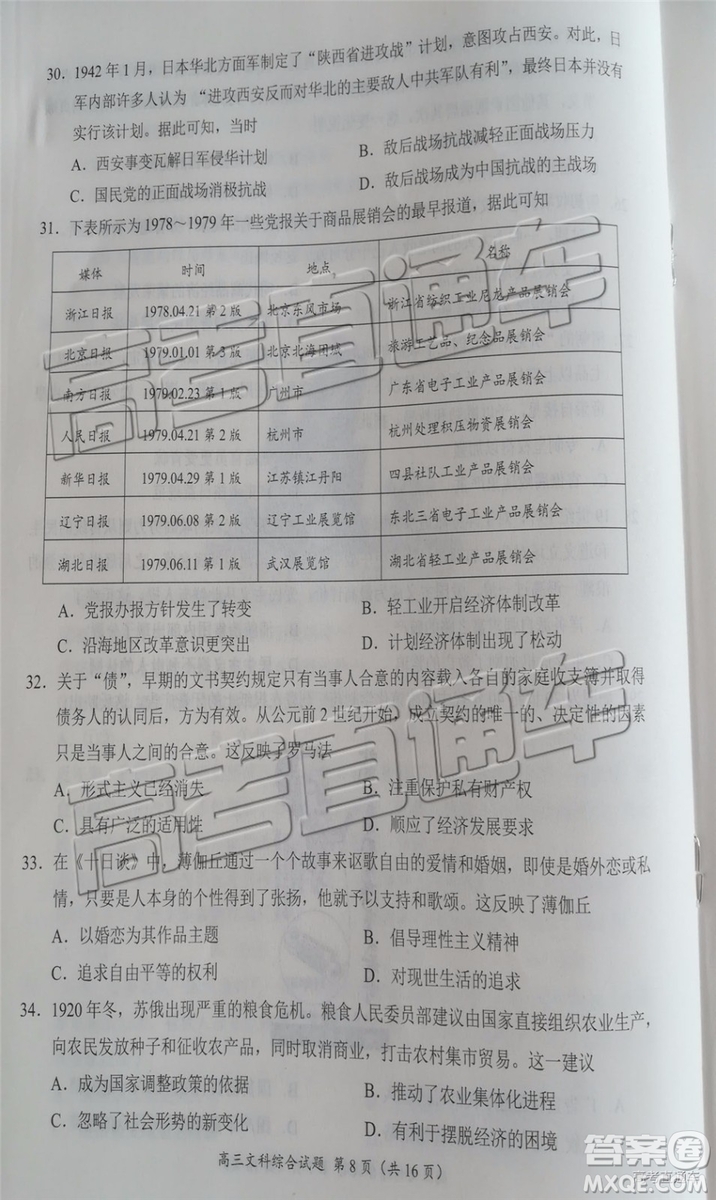 30．1942 年 1 月，日本华北方面军制定了“陕西省进攻战”计划，意图攻占西安。对此，日
军内部许多人认为 “进攻西安反而对华北的主要敌人中共军队有利”，最终日本并没有
实行该计划。据此可知，当时
A．西安事变瓦解日军侵华计划 B．敌后战场抗战减轻正面战场压力
C．国民党的正面战场消极抗战 D．敌后战场成为中国抗战的主战场
31．下表所示为 1978～1979 年一些党报关于商品展销会的最早报道，据此可知
媒体 时间 地点 名称
浙江日报 1978.04.21 第 2 版 北京东风市场 浙江省纺织工业尼龙产品展销会
北京日报 1979.01.01 第 3 版 北京北海团城 旅游工艺品、纪念品展销会
南方日报 1979.02.23 第 1 版 广州市 广东省电子工业产品展销会
人民日报 1979.04.21 第 2 版 杭州市 杭州处理积压物资展销会
新华日报 1979.04.29 第 1 版 江苏镇江丹阳 四县社队工业产品展销会
辽宁日报 1979.06.08 第 2 版 辽宁工业展览馆 东北三省电子工业产品展销会
湖北日报 1979.06.11 第 1 版 武汉展览馆 湖北省轻工业产品展销会
A．党报办报方针发生了转变 B．轻工业开启经济体制改革
C．沿海地区改革意识更突出 D．计划经济体制出现了松动
32．关于“债”，早期的文书契约规定只有当事人合意的内容载入各自的家庭收支簿并取得
债务人的认同后，方为有效。从公元前 2 世纪开始，成立契约的唯一的、决定性的因素
只是当事人之间的合意。这反映了罗马法
A．形式主义已经消失 B．注重保护私有财产权
C．具有广泛的适用性 D．顺应了经济发展要求
33．在《十日谈》中，薄伽丘通过一个个故事来讴歌自由的爱情和婚姻，即使是婚外恋或私
情，只要是人本身的个性得到了张扬，他就予以支持和歌颂。这反映了薄伽丘
A．以婚恋为其作品主题 B．倡导理性主义精神
C．追求自由平等的权利 D．对现世生活的追求
34．1920 年冬，苏俄出现严重的粮食危机。粮食人民委员部建议由国家直接组织农业生产，
向农民发放种子和征收农产品，同时取消商业，打击农村集市贸易。这一建议
A．成为国家调整政策的依据 B．推动了农业集体化进程
C．忽略了社会形势的新变化 D．有利于摆脱经济的困境
高三文科综合试题 第 8 页（共 16 页）
高考直通车
高考直通车
答案圈
MXQE.COM